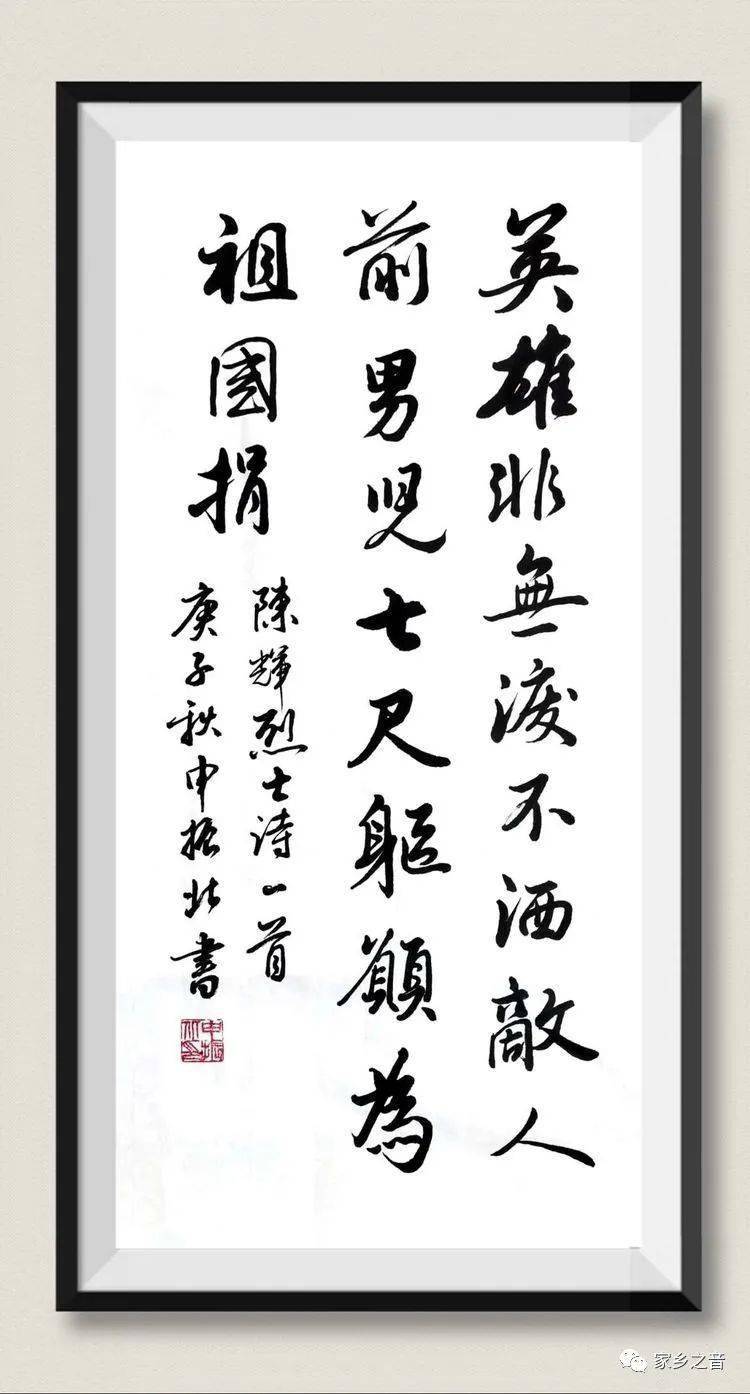 英雄非無淚不洒敵人
前男兒七尺軀願為
祖國捐
陳輝烈士詩一首
庚子秋申振北書
申振北印
家乡之音